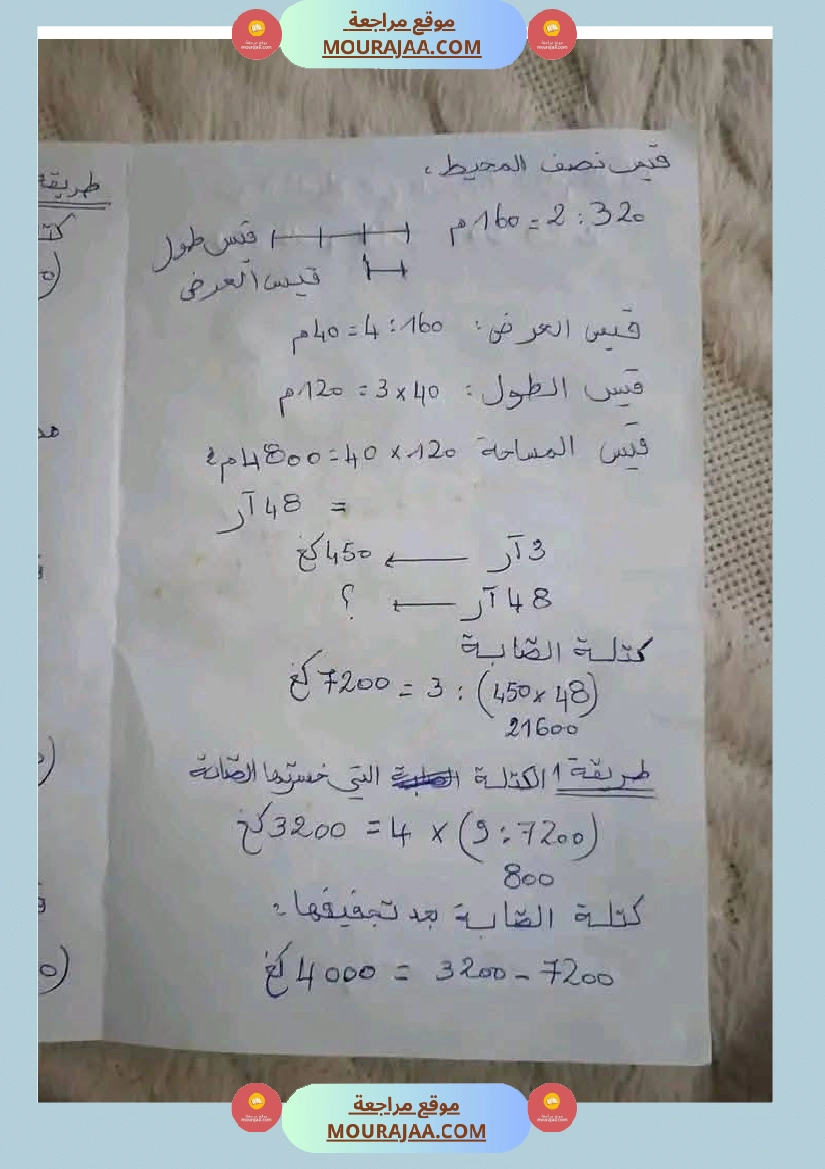 موقع مراجعة
MOURAJAA.COM
قيس نصف المحيط :
320 : 2 = 160م
قيس طول
قيس العرض
قيس العرض : 160 : 4 = 40م
قيس الطول : 40 × 3 = 120م
قيس المساحة 120 × 40 = 4800م²
= 48 آر
3 آر ← 450 كغ
48 آر ← ؟
كتلة الصّابة
(48 × 450) : 3 = 7200 كغ
21600
طريقة 1 الكتلة التي خسرتها الصّابة
(7200 : 9) × 4 = 3200 كغ
800
كتلة الصّابة بعد تجفيفها :
7200 - 3200 = 4000 كغ
طريقة
موقع مراجعة
MOURAJAA.COM